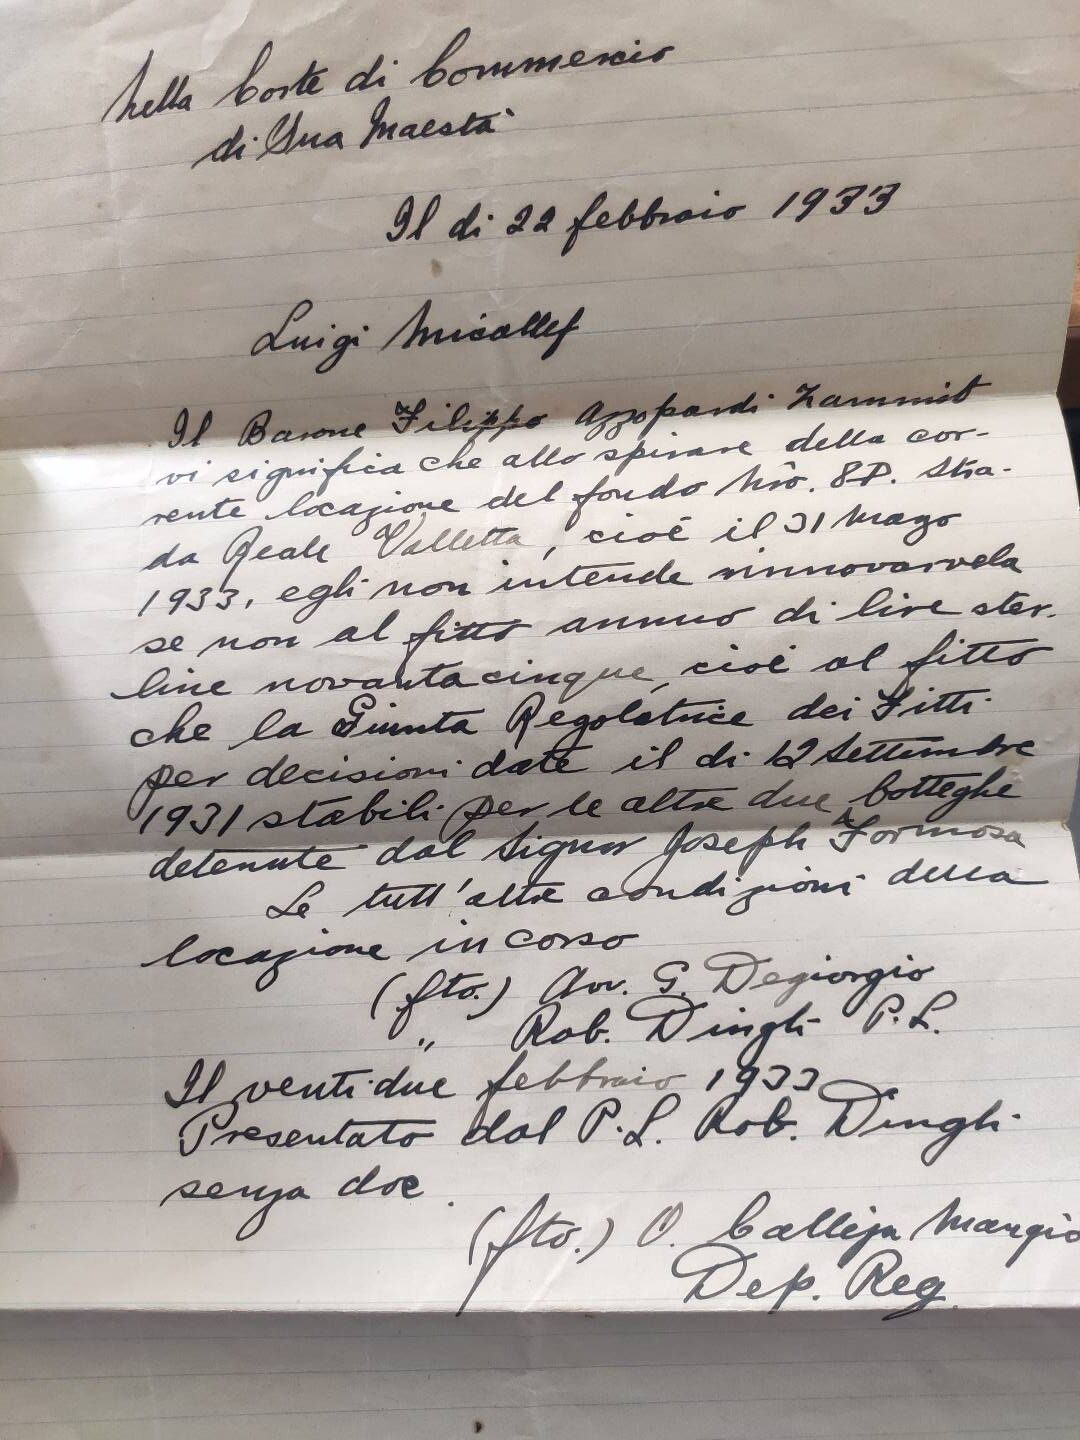 Nella Corte di Commercio
di Sua Maestà
Il di 22 febbraio 1933
Luigi Micallef
Il Barone Filippo Azzopardi Zammit
vi significa che allo spirare della cor-
rente locazione del fondo Nro. 8P. Stra-
da Reale Valletta, cioé il 31 Mago
1933, egli non intende rinnovarvela
se non al fitto annuo di lire ster-
line novantacinque, cioé al fitto
che la Giunta Regolatrice dei Fitti
per decisioni date il di 12 Settembre
1931 stabili per le altre due botteghe
detenute dal Signor Joseph Formosa
Le tutt'altre condizioni della
locazione in corso
(fto.) Avv. G. Degiorgio
" Rob. Dingli P.L.
Il ventidue febbraio 1933
Presentato dal P.L. Rob. Dingli
senza doc.
(fto.) O. Calleja Mangio
Dep. Reg.